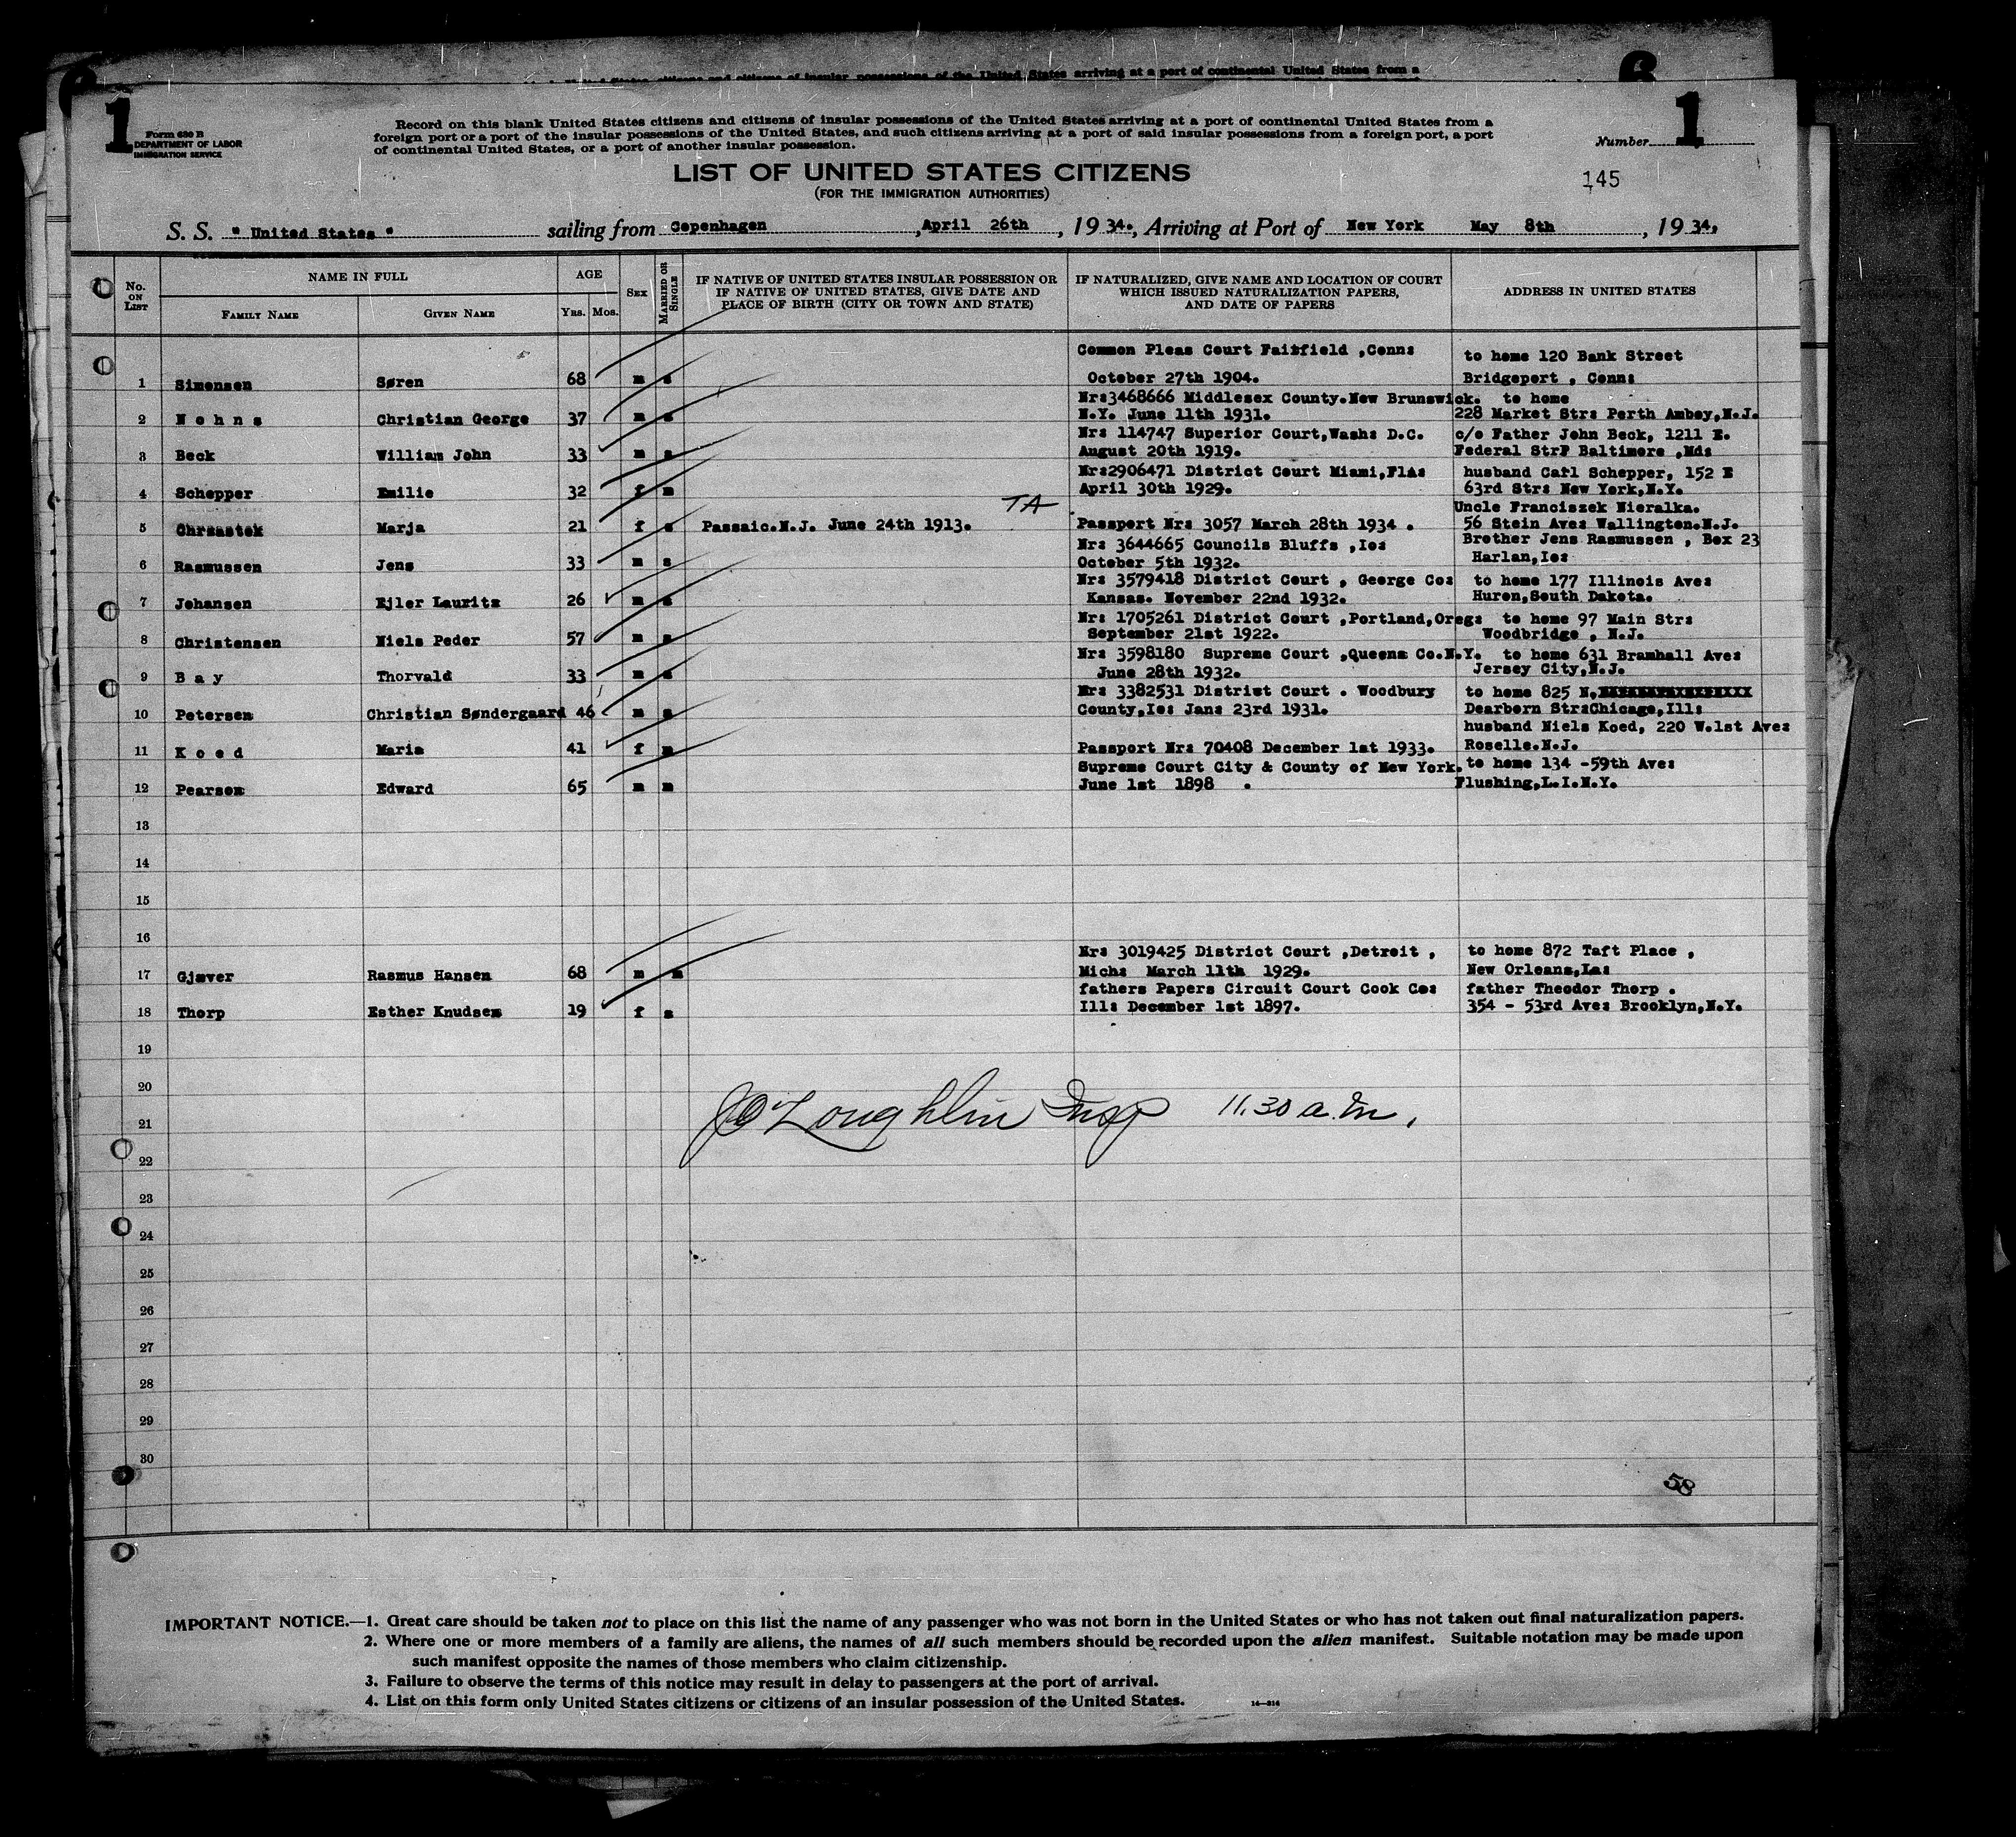 1
Form 630 B
DEPARTMENT OF LABOR
IMMIGRATION SERVICE
Record on this blank United States citizens and citizens of insular possessions of the United States arriving at a port of continental United States from a
foreign port or a port of the insular possessions of the United States, and such citizens arriving at a port of said insular possessions from a foreign port, a port
of continental United States, or a port of another insular possession.
Number 1
LIST OF UNITED STATES CITIZENS
(FOR THE IMMIGRATION AUTHORITIES)
145
S. S. " United States " sailing from Copenhagen , April 26th , 19 34., Arriving at Port of New York May 8th , 19 34,
No. ON LIST
NAME IN FULL
FAMILY NAME
GIVEN NAME
AGE
YRS. MOS.
SEX
MARRIED OR SINGLE
IF NATIVE OF UNITED STATES INSULAR POSSESSION OR
IF NATIVE OF UNITED STATES, GIVE DATE AND
PLACE OF BIRTH (CITY OR TOWN AND STATE)
IF NATURALIZED, GIVE NAME AND LOCATION OF COURT
WHICH ISSUED NATURALIZATION PAPERS,
AND DATE OF PAPERS
ADDRESS IN UNITED STATES
Common Pleas Court Fairfield ,Conn: to home 120 Bank Street
1 Simonsen Søren 68 m s October 27th 1904. Bridgeport , Conn:
Nr:3468666 Middlesex County.New Brunswick. to home
2 N o h n s Christian George 37 m s N.Y. June 11th 1931. 228 Market Str: Perth Amboy,N.J.
Nr: 114747 Superior Court,Wash: D.C. c/o Father John Beck, 1211 E.
3 Beck William John 33 m s August 20th 1919. Federal Str: Baltimore ,Md:
Nr:2906471 District Court Miami,Fla: husband Carl Schepper, 152 E
4 Schepper Emilie 32 f m April 30th 1929. 63rd Str: New York,N.Y.
TA Uncle Franciszek Nieralka.
5 Chrzastek Marja 21 f s Passaic.N.J. June 24th 1913. Passport Nr: 3057 March 28th 1934 . 56 Stein Ave: Wallington.N.J.
Nr: 3644665 Councils Bluffs ,Io: Brother Jens Rasmussen , Box 23
6 Rasmussen Jens 33 m s October 5th 1932. Harlan,Io:
Nr: 3579418 District Court , George Co: to home 177 Illinois Ave:
7 Johansen Ejler Lauritz 26 m s Kansas. November 22nd 1932. Huron,South Dakota.
Nr: 1705261 District Court ,Portland,Oreg: to home 97 Main Str:
8 Christensen Niels Peder 57 m s September 21st 1922. Woodbridge , N.J.
Nr: 3598180 Supreme Court ,Queens Co.N.Y. to home 631 Bramhall Ave:
9 B a y Thorvald 33 m s June 28th 1932. Jersey City,N.J.
Nr: 3382531 District Court . Woodbury to home 825 N.
10 Petersen Christian Søndergaard 46 m s County,Io: Jan: 23rd 1931. Dearborn Str:Chicago,Ill:
husband Niels Koed, 220 W.1st Ave:
11 K o e d Maria 41 f m Passport Nr: 70408 December 1st 1933. Roselle.N.J.
Supreme Court City & County of New York. to home 134 -59th Ave:
12 Pearson Edward 65 m m June 1st 1898 . Flushing,L.I.N.Y.
13
14
15
16
Nr: 3019425 District Court ,Detroit , to home 872 Taft Place ,
17 Gjæver Rasmus Hansen 68 m m Mich: March 11th 1929. New Orleans,La:
fathers Papers Circuit Court Cook Co: father Theodor Thorp .
18 Thorp Esther Knudsen 19 f s Ill: December 1st 1897. 354 - 53rd Ave: Brooklyn,N.Y.
19
20
JO'Loughlin Insp 11.30 a.m.
21
22
23
24
25
26
27
28
29
30
58
IMPORTANT NOTICE.—1. Great care should be taken not to place on this list the name of any passenger who was not born in the United States or who has not taken out final naturalization papers.
2. Where one or more members of a family are aliens, the names of all such members should be recorded upon the alien manifest. Suitable notation may be made upon
such manifest opposite the names of those members who claim citizenship.
3. Failure to observe the terms of this notice may result in delay to passengers at the port of arrival.
4. List on this form only United States citizens or citizens of an insular possession of the United States.
14—814